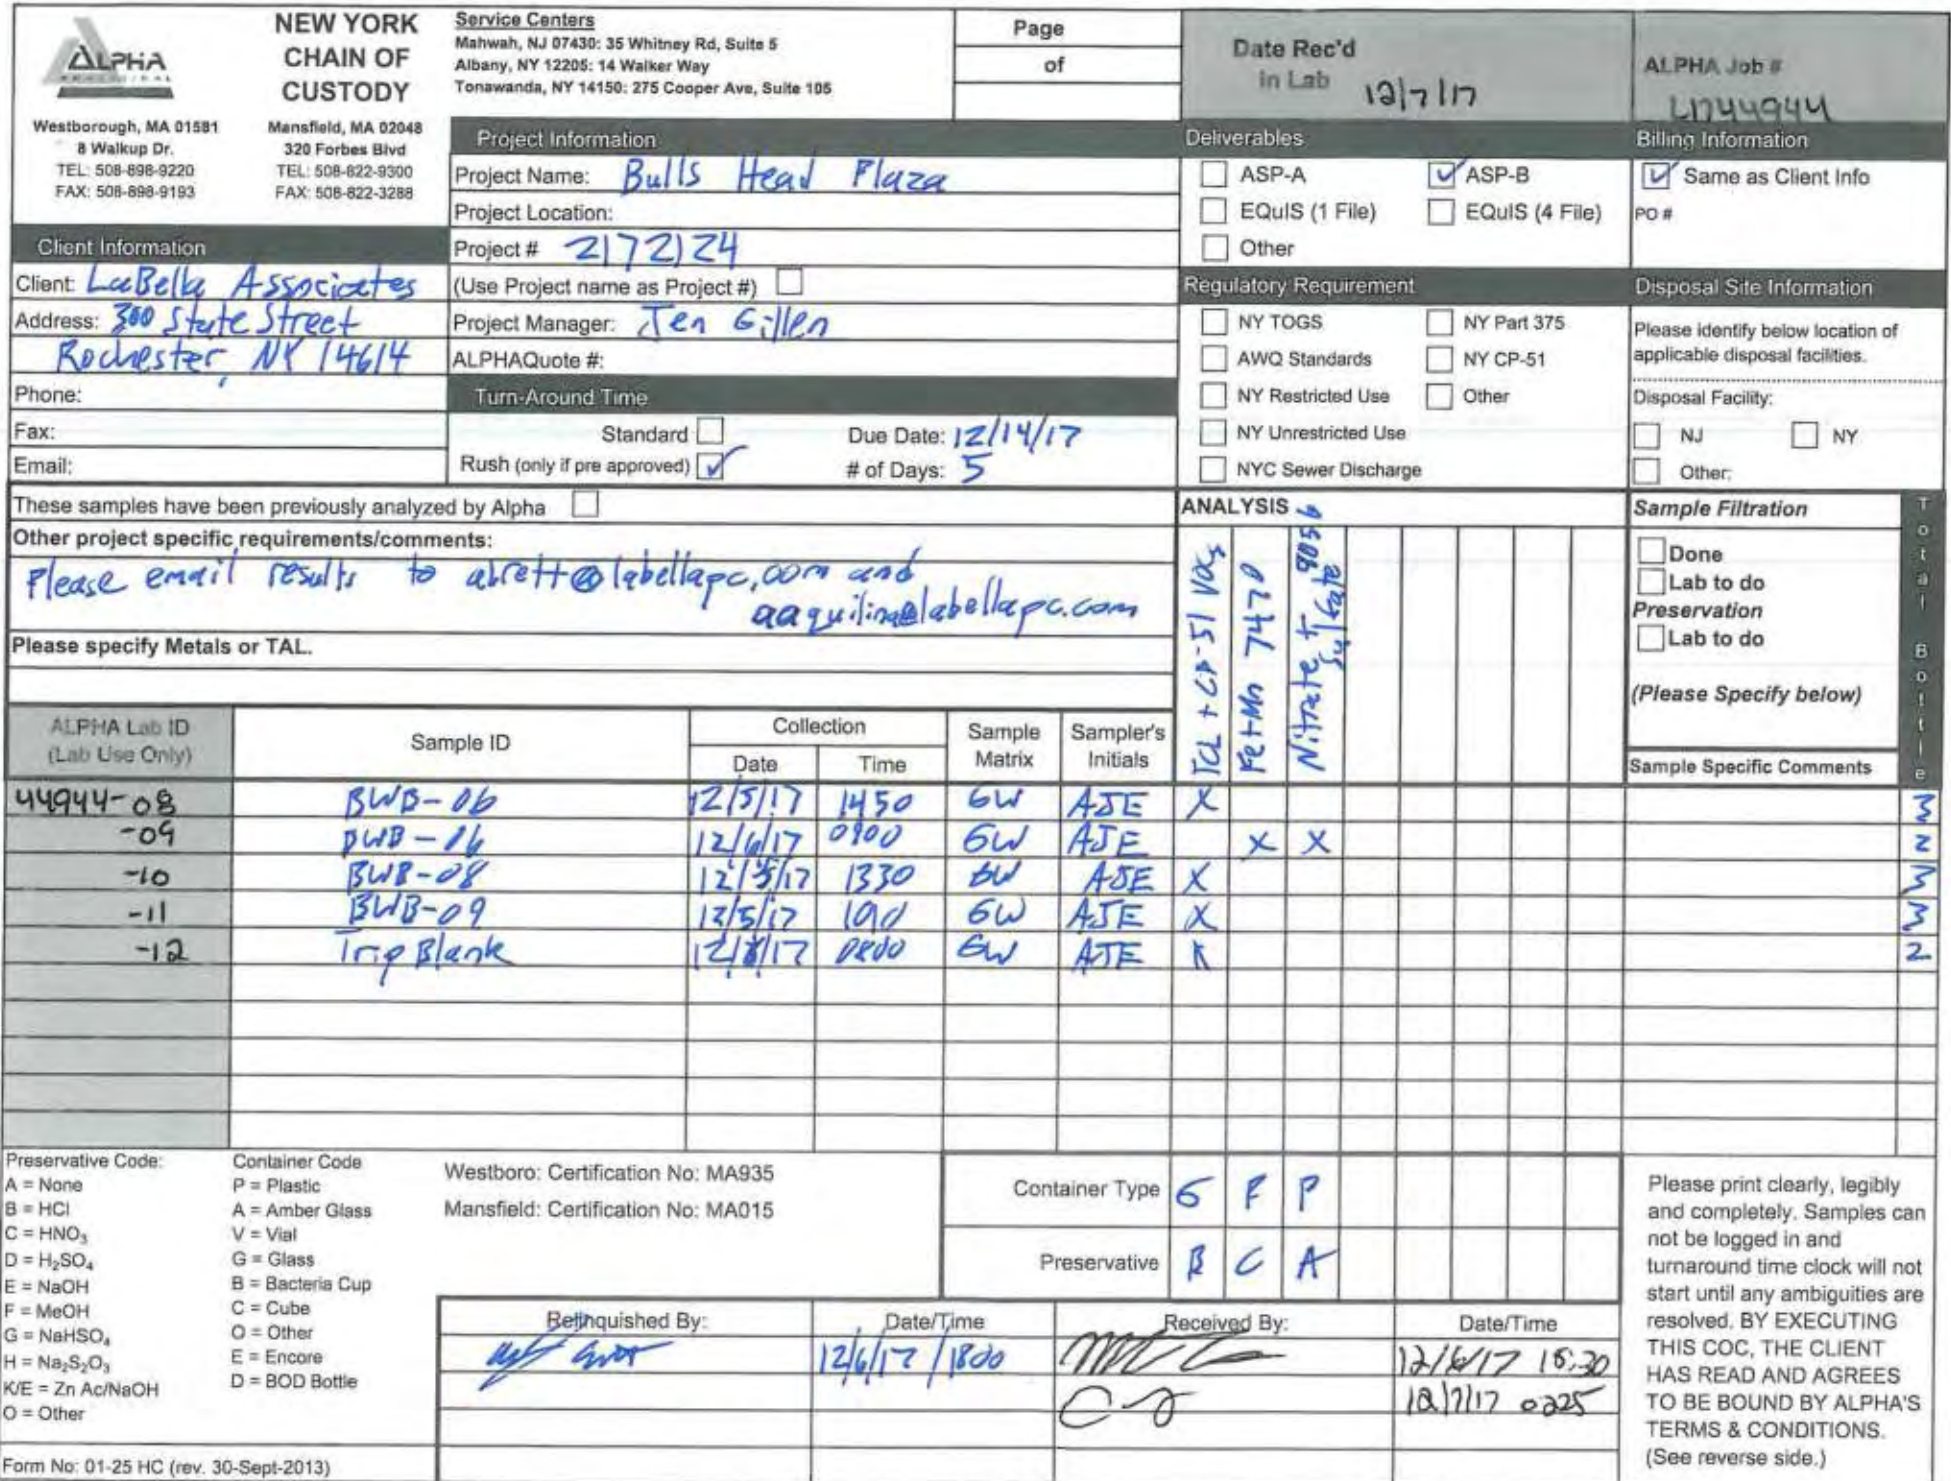 ALPHA
NEW YORK
CHAIN OF
CUSTODY
Westborough, MA 01581
8 Walkup Dr.
TEL: 508-898-9220
FAX: 508-898-9193
Mansfield, MA 02048
320 Forbes Blvd
TEL: 508-822-9300
FAX: 508-822-3288
Service Centers
Mahwah, NJ 07430: 35 Whitney Rd, Suite 5
Albany, NY 12205: 14 Walker Way
Tonawanda, NY 14150: 275 Cooper Ave, Suite 105
Page
of
Date Rec'd
in Lab 12/7/17
ALPHA Job #
L1744944
Client Information
Client: LaBella Associates
Address: 300 State Street
Rochester, NY 14614
Phone:
Fax:
Email:
Project Information
Project Name: Bulls Head Plaza
Project Location:
Project # 2172124
(Use Project name as Project #)
Project Manager: Jen Gillen
ALPHAQuote #:
Turn-Around Time
Standard Due Date: 12/14/17
Rush (only if pre approved) ✓ # of Days: 5
Deliverables
ASP-A ✓ ASP-B
EQuIS (1 File) EQuIS (4 File)
Other
Regulatory Requirement
NY TOGS NY Part 375
AWQ Standards NY CP-51
NY Restricted Use Other
NY Unrestricted Use
NYC Sewer Discharge
Billing Information
✓ Same as Client Info
PO #
Disposal Site Information
Please identify below location of
applicable disposal facilities.
Disposal Facility:
NJ NY
Other:
These samples have been previously analyzed by Alpha
Other project specific requirements/comments:
Please email results to abrett@labellapc.com and
aaquilina@labellapc.com
Please specify Metals or TAL.
ANALYSIS
TCL + CP-51 VOCs
Fe+Mn 7470
Nitrate + Sulfate 9056
Sample Filtration
Done
Lab to do
Preservation
Lab to do
(Please Specify below)
Total Bottle
ALPHA Lab ID
(Lab Use Only)
Sample ID
Collection
Date Time
Sample
Matrix
Sampler's
Initials
Sample Specific Comments
44944-08 BWB-06 12/5/17 1450 GW AJE X 3
-09 BWB-06 12/6/17 0900 GW AJE X X 2
-10 BWB-08 12/5/17 1330 GW AJE X 3
-11 BWB-09 12/5/17 GW AJE X 3
-12 Trip Blank 0800 GW AJE X 2
Preservative Code:
A = None
B = HCl
C = HNO₃
D = H₂SO₄
E = NaOH
F = MeOH
G = NaHSO₄
H = Na₂S₂O₃
K/E = Zn Ac/NaOH
O = Other
Container Code
P = Plastic
A = Amber Glass
V = Vial
G = Glass
B = Bacteria Cup
C = Cube
O = Other
E = Encore
D = BOD Bottle
Westboro: Certification No: MA935
Mansfield: Certification No: MA015
Container Type G P P
Preservative B C A
Relinquished By: Date/Time Received By: Date/Time
12/6/17 /1800 12/6/17 18:30
12/7/17 0225
Please print clearly, legibly
and completely. Samples can
not be logged in and
turnaround time clock will not
start until any ambiguities are
resolved. BY EXECUTING
THIS COC, THE CLIENT
HAS READ AND AGREES
TO BE BOUND BY ALPHA'S
TERMS & CONDITIONS.
(See reverse side.)
Form No: 01-25 HC (rev. 30-Sept-2013)